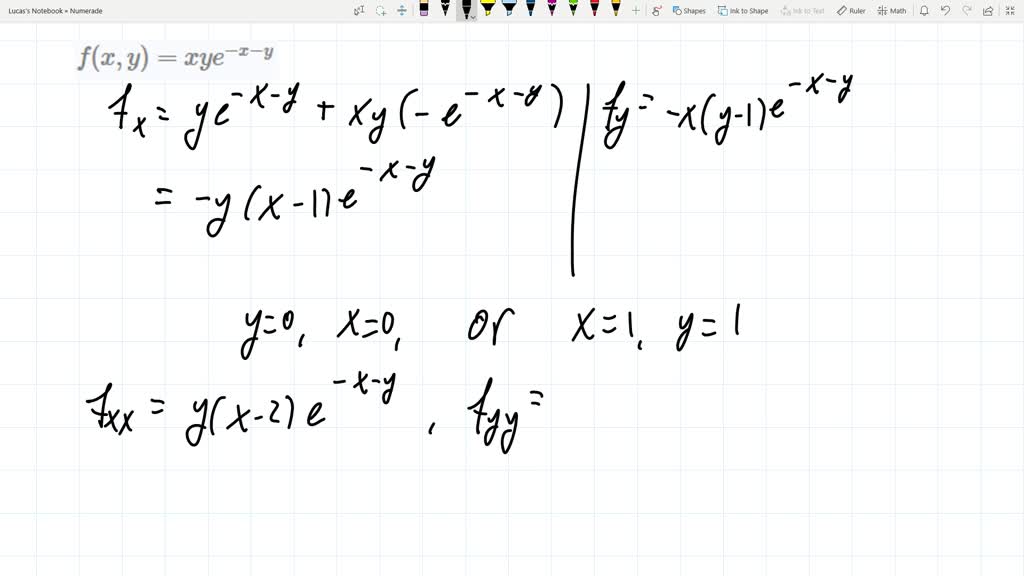 Lucas's Notebook » Numerade
Shapes Ink to Shape Ink to Text Ruler Math
f(x, y) = xye^{-x-y}
f_x = ye^{-x-y} + xy(-e^{-x-y}) | f_y = -x(y-1)e^{-x-y}
= -y(x-1)e^{-x-y}
y=0, x=0, or x=1, y=1
f_{xx} = y(x-2)e^{-x-y}, f_{yy} =